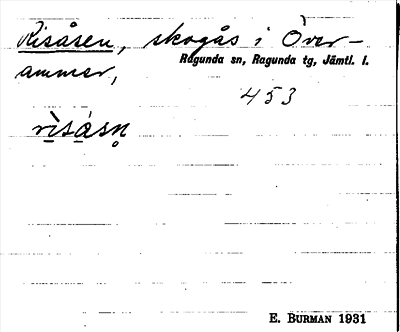 Risåsen, skogås i Över-
Ragunda sn, Ragunda tg, Jämtl. l.
ammer,
453
rìsásn̥
E. BURMAN 1931